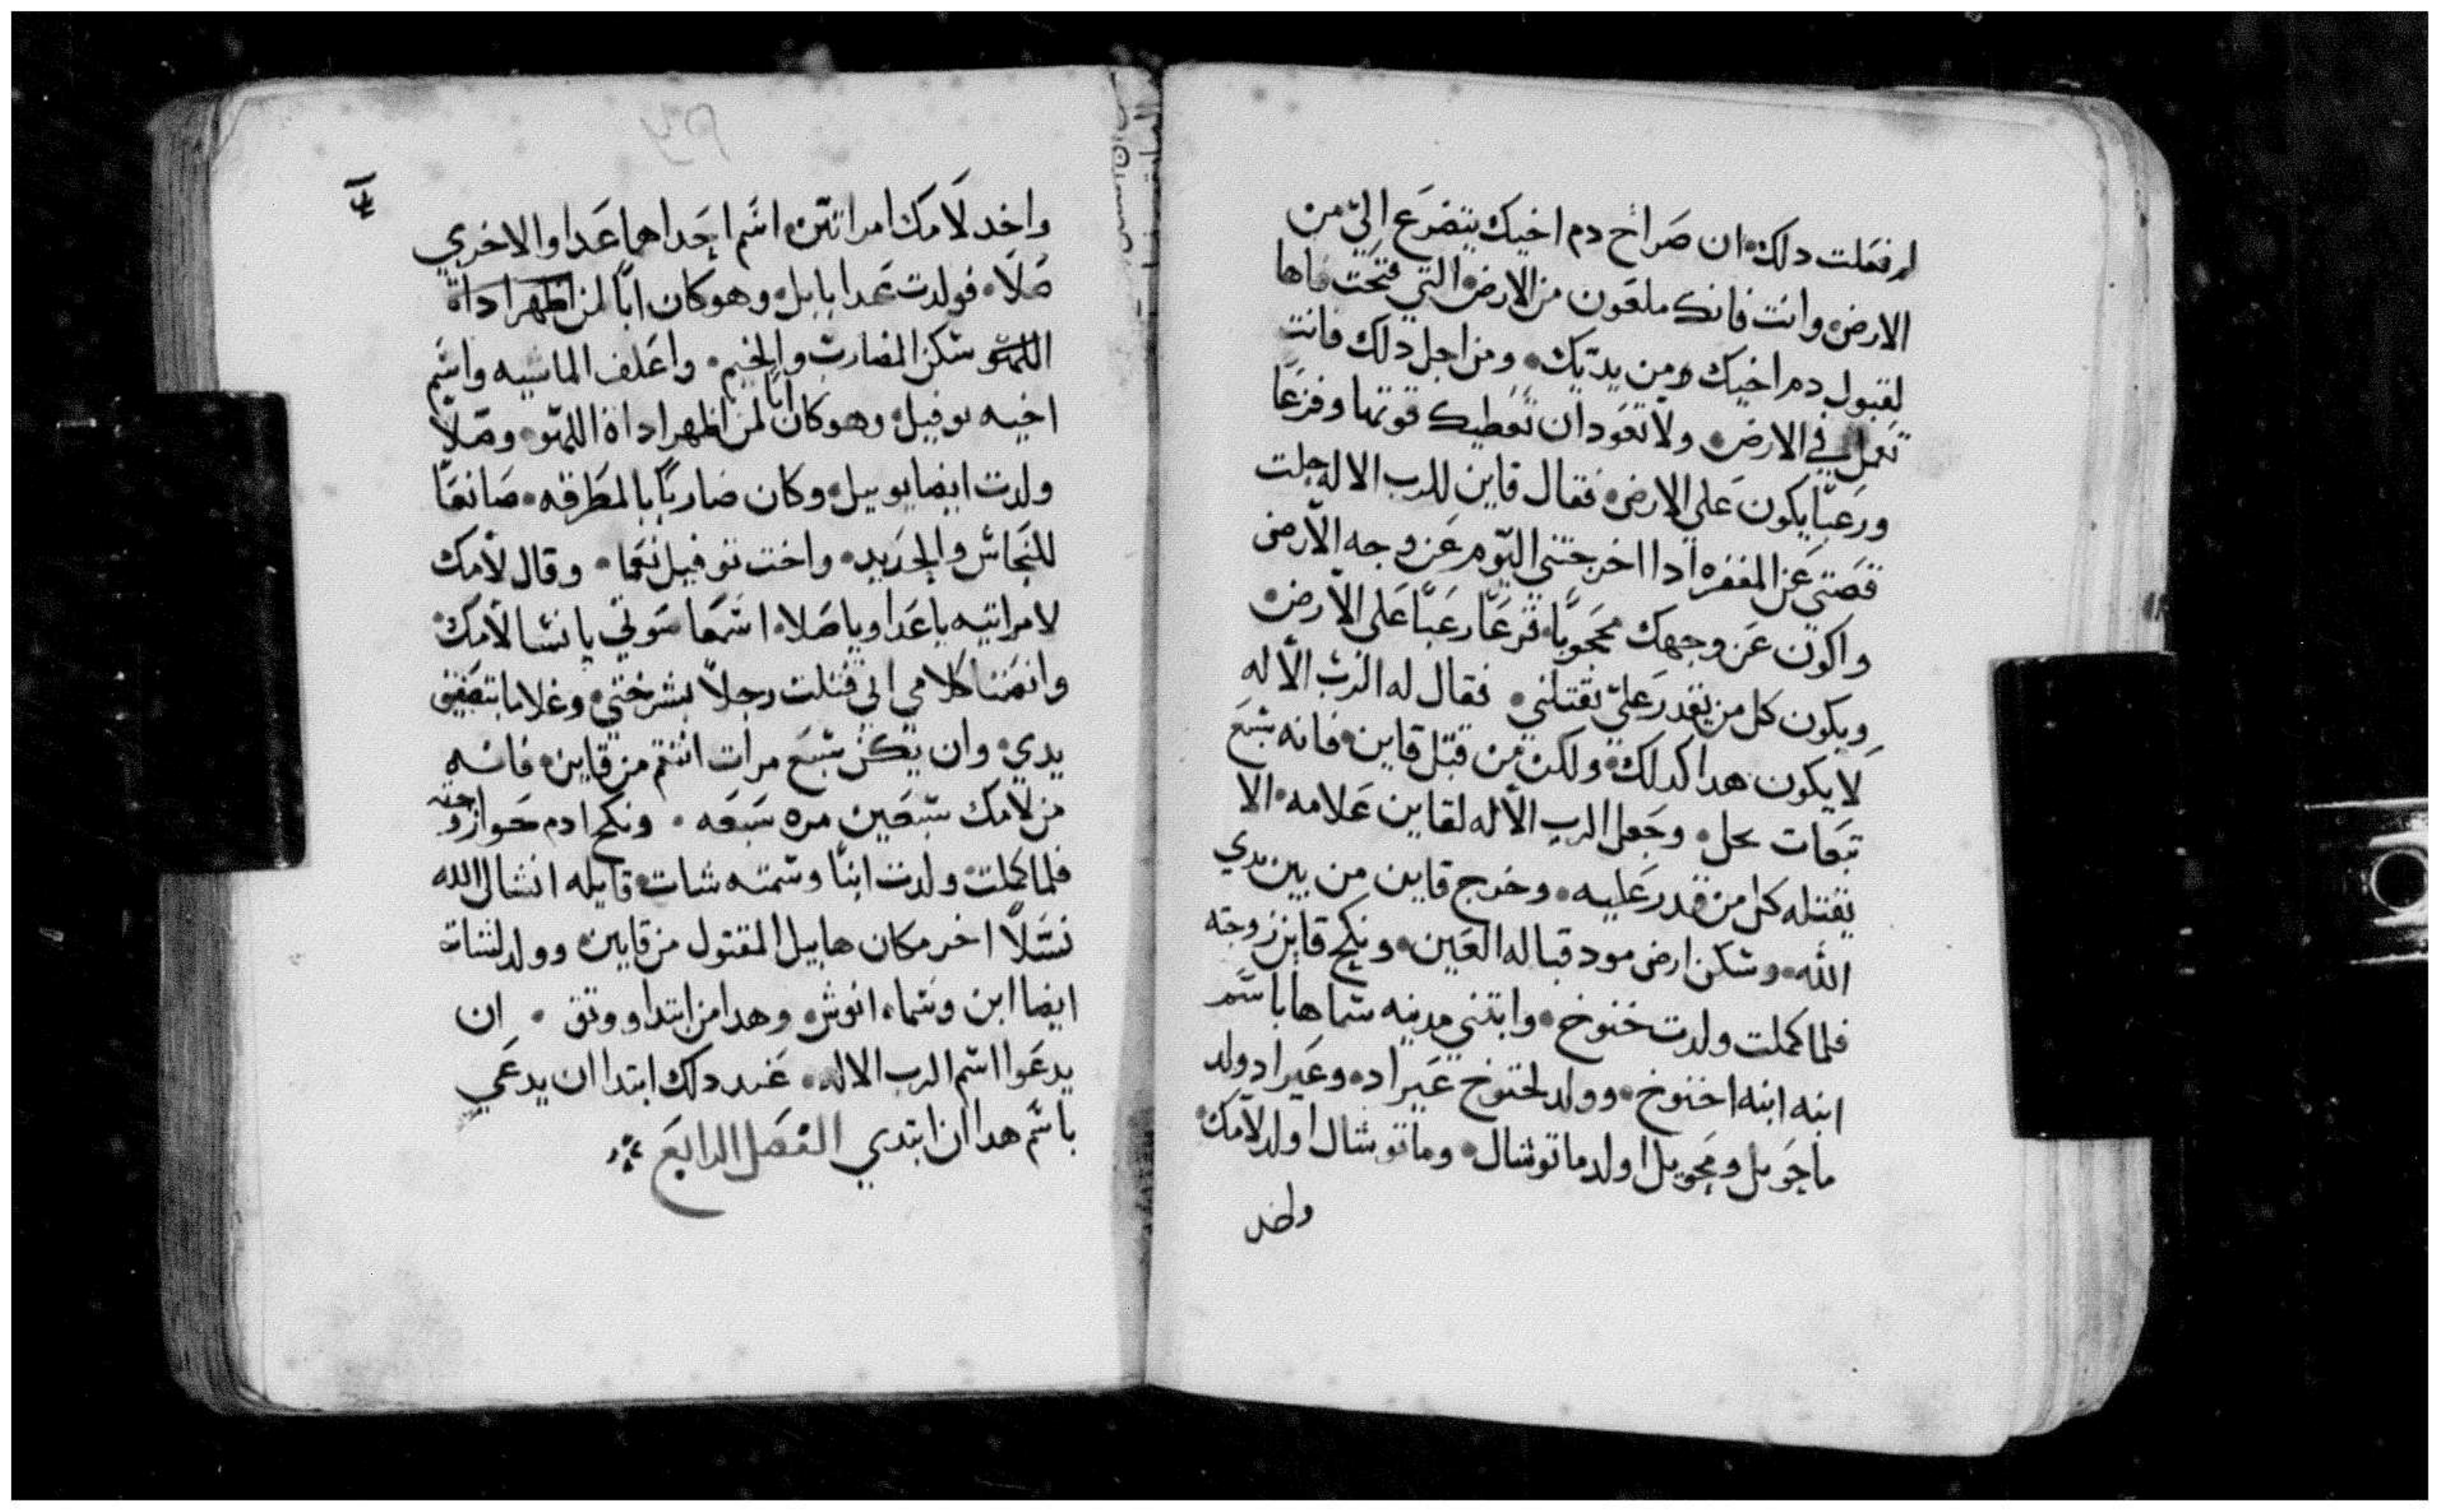 لم فعلت دلك ان صراخ دم اخيك يتضرع اليّ من
الارض وانت فانك ملعون من الارض التي فتحت فاها
لقبول دم اخيك من يديك ومن اجل دلك فانت
تعمل في الارض ولا تعود ان تعطيك قوتها وفزعًا
ورعبًا يكون علي الارض فقال قاين للرب الاله جلت
قصتي عن المغفره ادا اخرجتني اليوم عن وجه الارض
واكون عن وجهك محجوبًا فزعًا رعبًا علي الارض
ويكون كل من يقدر عليّ يقتلني فقال له الرب الاله
لا يكون هدا كدلك ولكن من قتل قاين فانه سبع
تبعات يحل وجعل الرب الاله لقاين علامه الا
يقتله كل من قدر عليه وخرج قاين من بين يدي
الله وسكن ارض مود قباله العين ونكح قاين زوجته
فلما كملت ولدت خنوخ وابتني مدينه سماها باسم
ابنه ابنه اخنوخ وولد لخنوخ عيراد وعيراد ولد
ماحويل ومحويل اولد ماتوشال وماتوشال اولد لامك
واخد
واخد لامك امراتين اسم احداهما عدا والاخري
صلا فولدت عدا يابل وهو كان ابًا لمن اظهر اداة
اللهو سكن المضارب والخيم واعلف الماشيه واسم
اخيه يوفيل وهو كان ابًا لمن اظهر اداة اللهو وصلا
ولدت ايضا يوبيل وكان ضاربًا بالمطرقه صانعًا
للنحاس والحديد واخت توفيل نعما وقال لامك
لامراتيه يا عدا ويا صلا اسمعا صوتي يا نسا لامك
وانصتنا كلامي اني قتلت رجلًا بشرختي وغلاما بتصفيق
يدي وان يكن سبع مرات انتقم من قاين فانه
من لامك سبعين مره سبعه ونكح ادم حوا زوجته
فلما كملت ولدت ابنًا وسمته شات قايله انشا لي الله
نسلًا اخر مكان هابيل المقتول من قايين وولد لشات
ايضا ابن وسماه انوش وهدا من ابتدا ووثق ان
يدعوا اسم الرب الاله عند دلك ابتدا ان يدعي
باسم هدا ان ابتدي الفصل الرابع